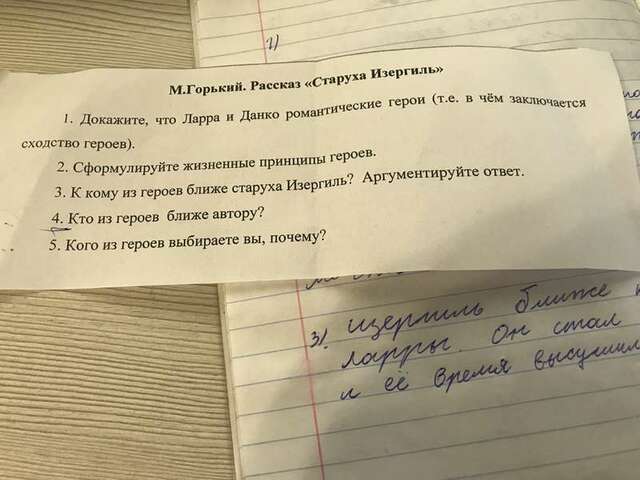 2)
М.Горький. Рассказ «Старуха Изергиль»
1. Докажите, что Ларра и Данко романтические герои (т.е. в чём заключается
сходство героев).
2. Сформулируйте жизненные принципы героев.
3. К кому из героев ближе старуха Изергиль? Аргументируйте ответ.
4. Кто из героев ближе автору?
5. Кого из героев выбираете вы, почему?
3). Изергиль ближе
Ларры. Он стал
и её время высушил